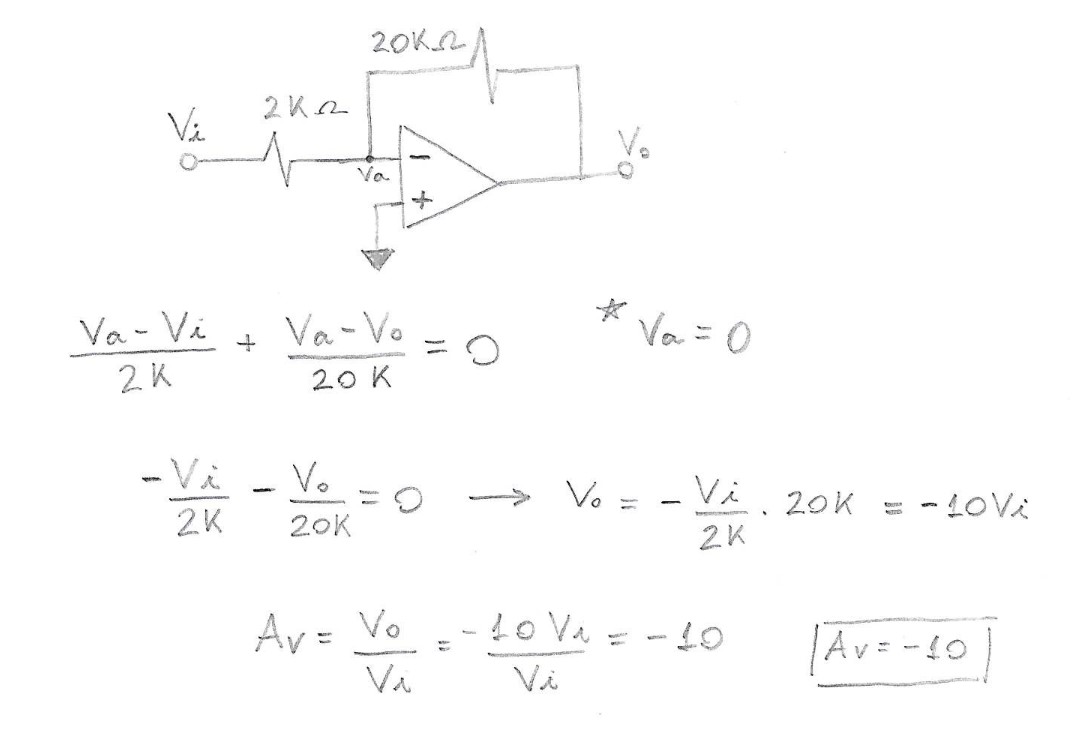 20KΩ
2KΩ
Vi
Vo
Va
−
+
(Va - Vi)/2K + (Va - Vo)/20K = 0
* Va = 0
-Vi/2K - Vo/20K = 0 → Vo = -Vi/2K . 20K = -10Vi
Av = Vo/Vi = -10Vi/Vi = -10
Av = -10